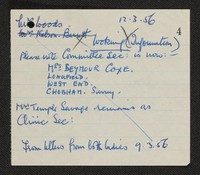 Mrs Woods.
12.3.56
4
Mrs Hobson-Burnett
Woking (Information)
Please note Committee Sec: is now:-
Mrs Seymour Coxe.
Longfield.
West End.
Chobham. Surrey.
Mrs Temple Savage remains as
Clinic Sec:
From letters from both ladies 9.3.56